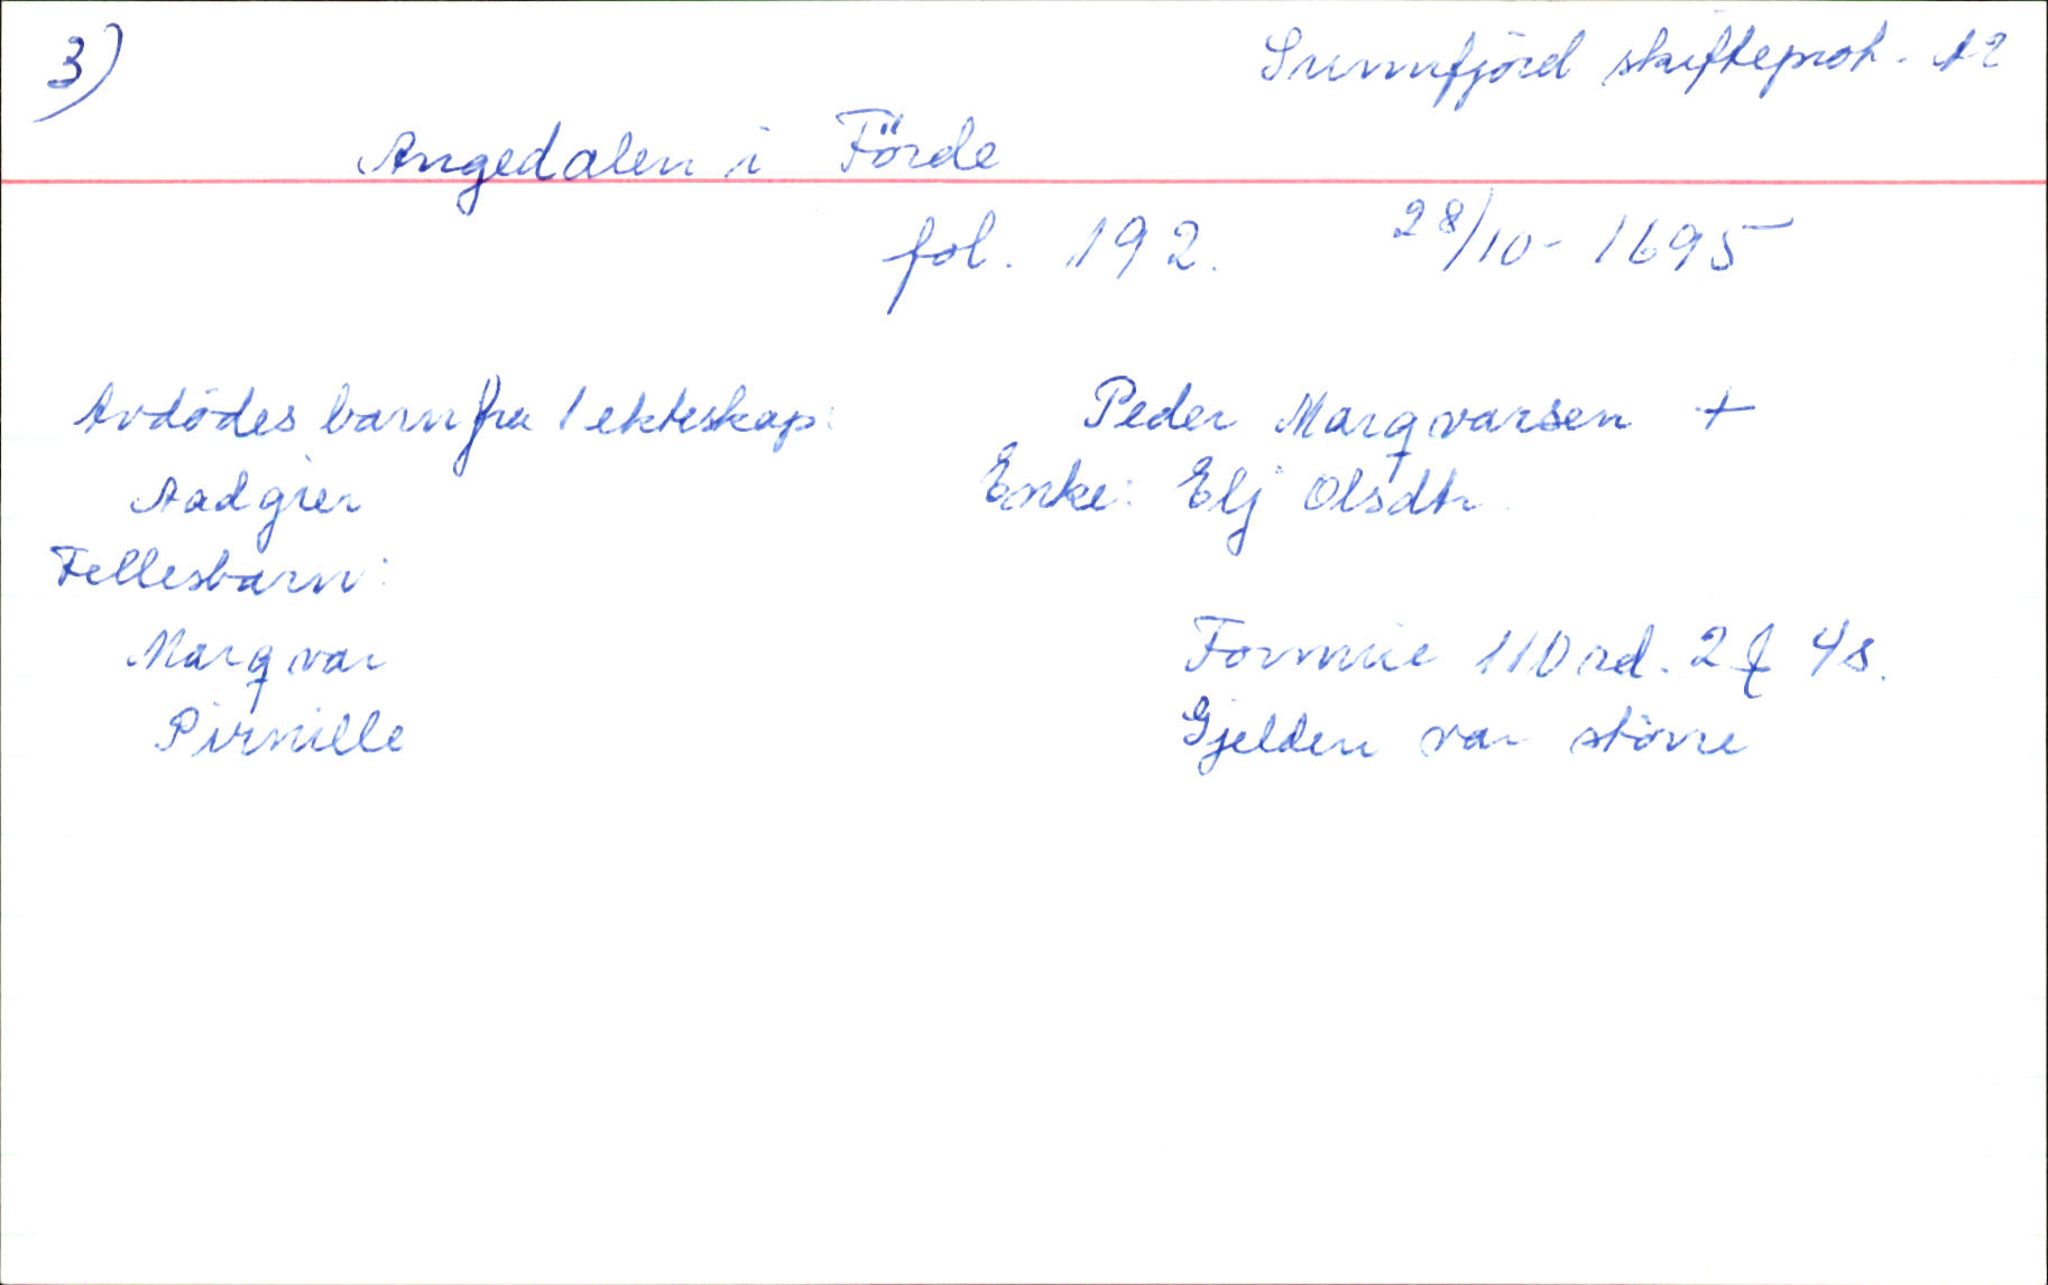 3)
Sunnfjörd skifteprot. A2
Angedalen i Förde
fol. 192. 28/10-1695
Avdödes barn fra 1 ekteskap:
Aadgier
Fellesbarn:
Marqvar
Pirnille
Peder Marqvarsen +
Enke: Elj Olsdtr
Formue 110 rd. 2 4s.
Gjelden var större